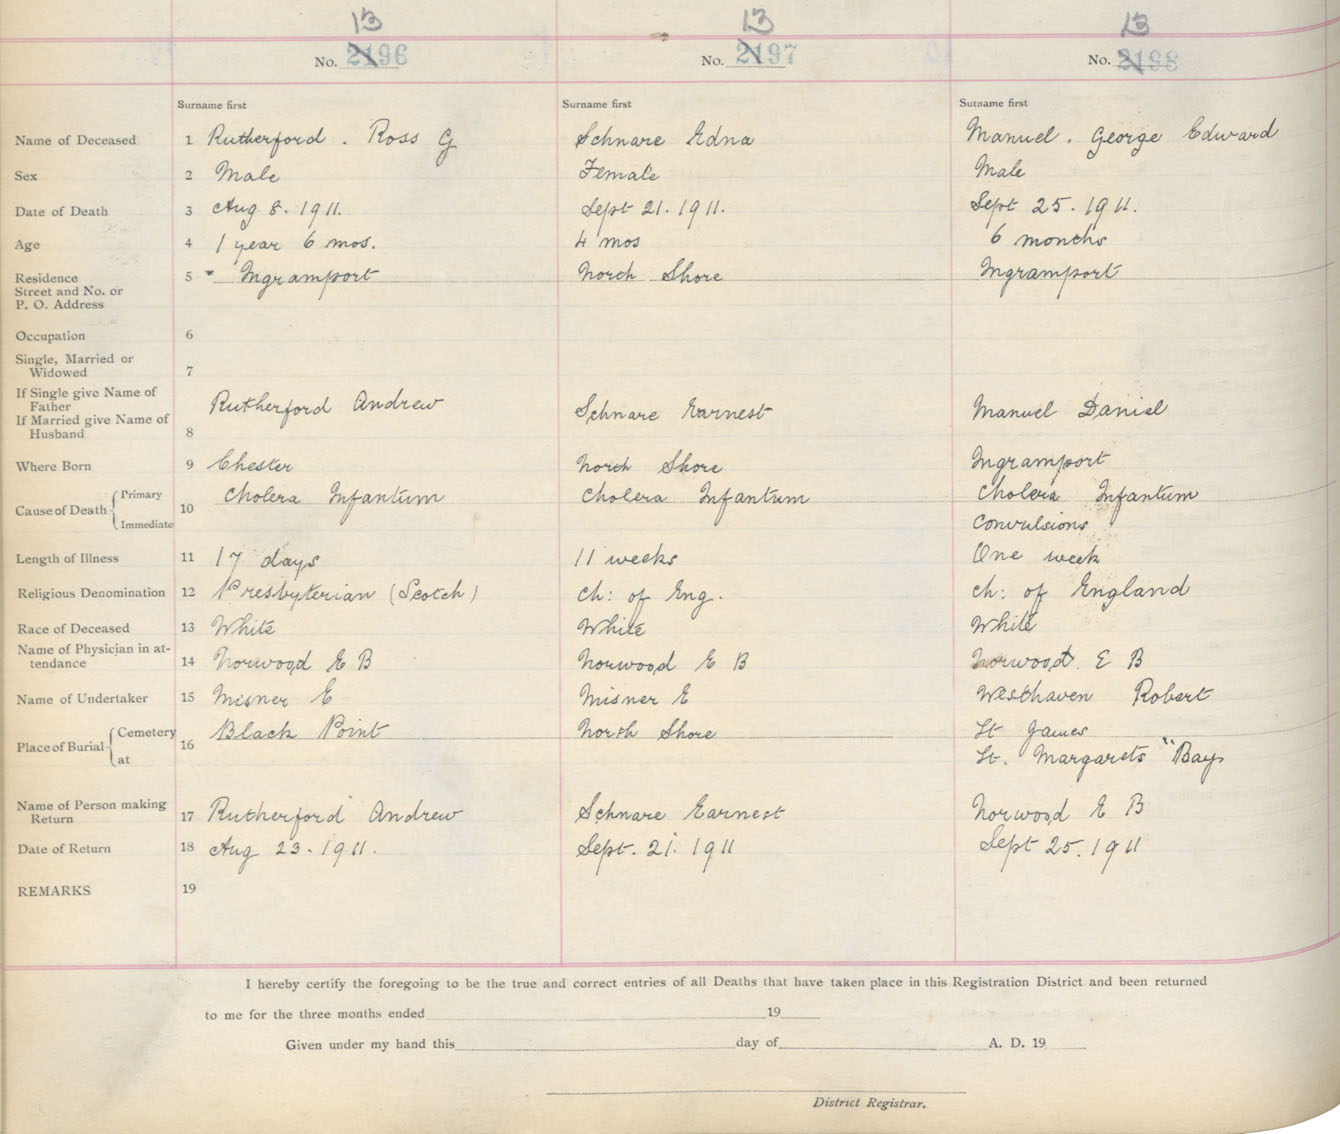 13 13 13
No. 2196 No. 2197 No. 2198
Surname first Surname first Surname first
Name of Deceased 1 Rutherford . Ross G Schnare Edna Manuel . George Edward
Sex 2 Male Female Male
Date of Death 3 Aug 8. 1911. Sept 21. 1911. Sept 25. 1911.
Age 4 1 year 6 mos. 4 mos 6 months
Residence
Street and No. or
P. O. Address 5 Ingramport North Shore Ingramport
Occupation 6
Single, Married or
Widowed 7
If Single give Name of
Father
If Married give Name of
Husband 8 Rutherford Andrew Schnare Earnest Manuel Daniel
Where Born 9 Chester North Shore Ingramport
Cause of Death Primary 10 Cholera Infantum Cholera Infantum Cholera Infantum
Immediate Convulsions
Length of Illness 11 17 days 11 weeks One week
Religious Denomination 12 Presbyterian (Scotch) Ch: of Eng. Ch: of England
Race of Deceased 13 White White White
Name of Physician in at-
tendance 14 Norwood E B Norwood E B Norwood. E B
Name of Undertaker 15 Misner E Misner E Westhaven Robert
Place of Burial Cemetery 16 Black Point North Shore St James
at St. Margarets " Bay
Name of Person making
Return 17 Rutherford Andrew Schnare Earnest Norwood E B
Date of Return 18 Aug 23. 1911. Sept. 21. 1911 Sept 25. 1911
REMARKS 19
I hereby certify the foregoing to be the true and correct entries of all Deaths that have taken place in this Registration District and been returned
to me for the three months ended 19
Given under my hand this day of A. D. 19
District Registrar.